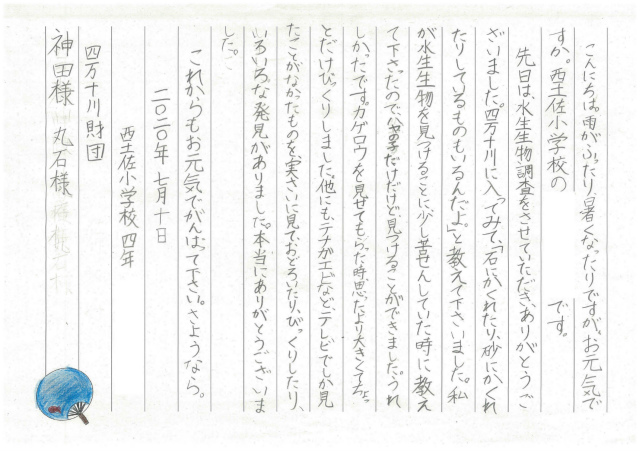 こんにちは。雨がふったり、暑くなったりですが、お元気で
すか。西土佐小学校の　　　　　です。
先日は、水生生物調査をさせていただき、ありがとうご
ざいました。四万十川に入ってみて、「石にかくれたり、砂にかくれ
たりしているものもいるんだよ。」と教えて下さいました。私
が水生生物を見つけることに、少し苦せんしていた時に教え
て下さったので、ハヤの子だけだけど、見つけることができました。うれ
しかったです。カゲロウを見せてもらった時、思ったより大きくてちょっ
とだけびっくりしました。他にも、テナガエビなどテレビでしか見
たことがなかったものを、実さいに見て、おどろいたり、びっくりしたり、
いろいろな発見がありました。本当にありがとうございま
した。
これからもお元気でがんばって下さい。さようなら。
二〇二〇年 七月十日
西土佐小学校 四年
四万十川財団
神田様 丸石様